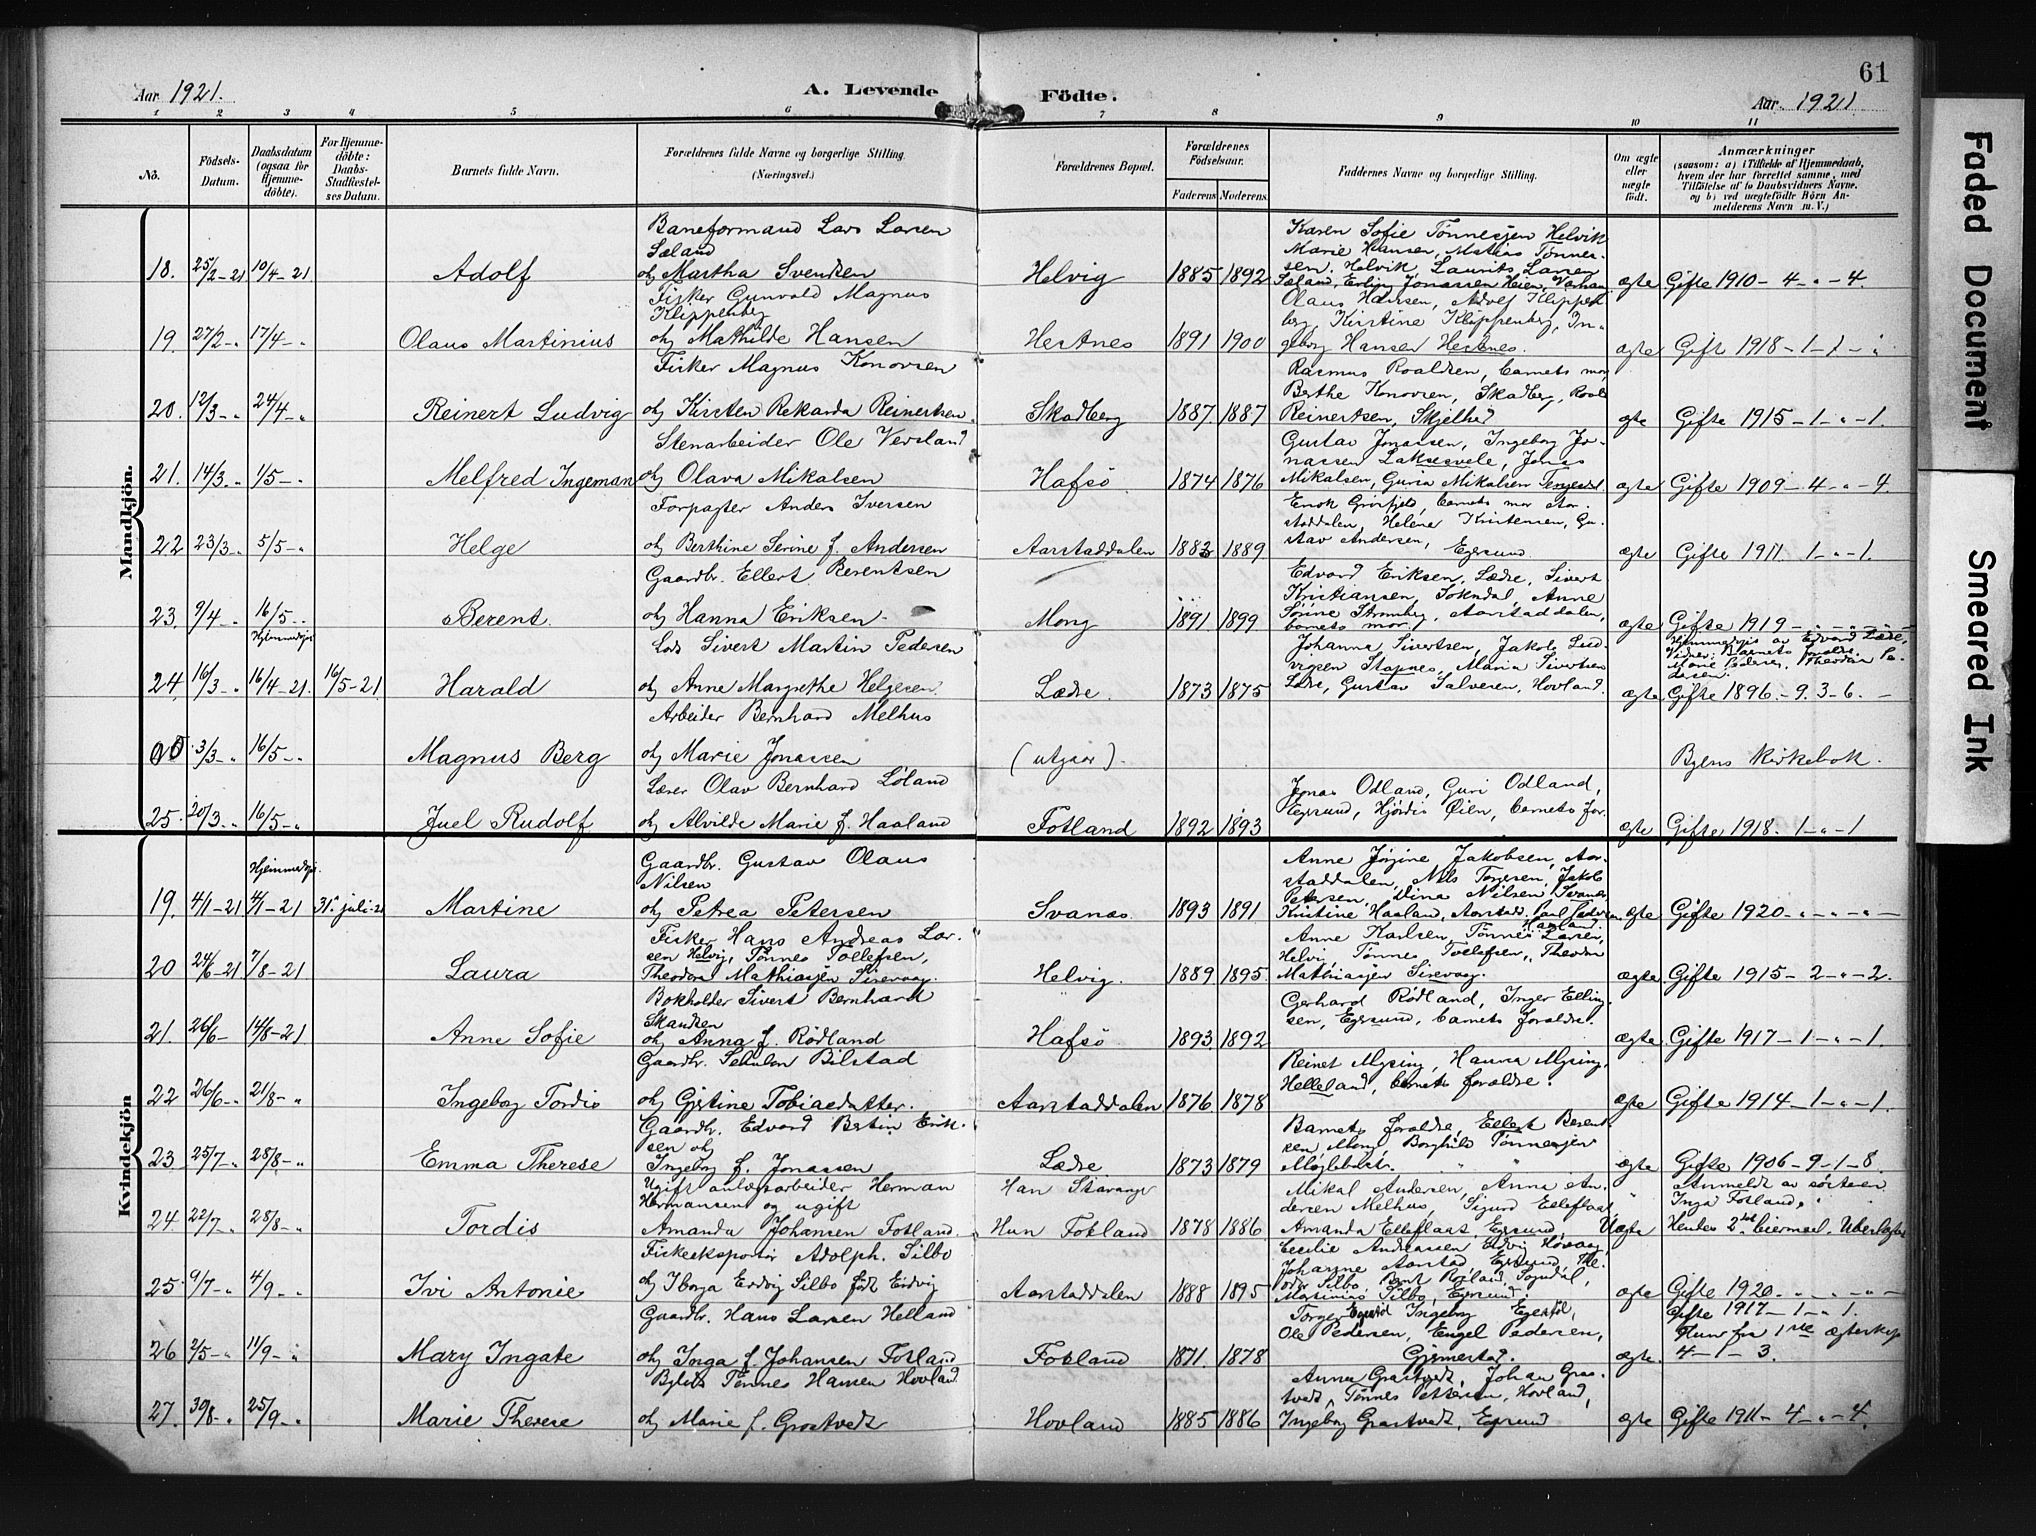 61
Aar 1921.
A. Levende
Födte.
Aar 1921
1 2 3 4 5 6 7 8 9 10 11
No.
Födsels-Datum.
Daabsdatum (ogsaa for Hjemmedöbte).
For Hjemmedöbte: Daabs-Stadfæstelses Datum.
Barnets fulde Navn.
Forældrenes fulde Navne og borgerlige Stilling.
(Næringsvei.)
Forældrenes Bopæl.
Forældrenes Födselsaar.
Faderens Moderens
Faddernes Navne og borgerlige Stilling.
Om ægte eller uægte födt.
Anmærkninger
(saasom: a) i Tilfælde af Hjemmedaab, hvem der har forrettet samme, med Tilföielse af to Daabsvidners Navne, og b) ved uægtefödte Börn Anmelderens Navn m. V.)
Mandkjön.
18. 25/2-21 10/4-21 Adolf
Baneformand Lars Larsen
Sæland
og Martha Svendsen
Helvig 1885 1892
Karen Sofie Tönnesjen Helvik
Marie Hansen, Mathias Tönnes-
sen. Helvik, Laurits Larsen
Sæland, Erling Jonassen Heien,
ægte Gifte 1910-4-"-4.
19. 27/2-" 17/4-" Olaus Martinius
Fisker Gunvald Magnus
Klippenberg
og Mathilde Hansen
Hestnes 1891 1900
Olaus Hansen, Adolf Klippen-
berg, Kirstine Klippenberg, In-
geborg Hansen Hestnes.
ægte Gift 1918-1-1-"
20. 12/3-" 24/4-" Reinert Ludvig
Fisker Magnus Konovsen
og Kirsten Rekarda Reinertsen.
Skadberg 1887. 1887
Rasmus Roaldsen, barnets mor,
Berthe Konovsen, Skadberg, Roald
Reinertsen, Skjelbred
gte Gifte 1915-1-"-1.
21. 14/3-" 1/5-" Melfred Ingeman
Stenarbeider Ole Versland
og Olava Mikalsen
Hafsö 1874 1876
Gustav Jonassen, Ingeborg Jo-
nassen Laksesvele, Jonas
Mikalsen, Guria Mikalsen Tengesdal
ægte Gifte 1909-4-"-4.
22 23/3-" 5/5-" Helge
Forpagter Anders Iversen
og Berthine Serine f. Andersen
Aarstaddalen 1883 1889
Enok Grösfjeld, barnets mor Aar-
staddalen, Helene Kristensen, Gu-
stav Andersen, Egersund
ægte Gifte 1911. 1-"-1.
23. 9/4-" 16/5-" Berent.
Gaardbr. Ellert Berentsen
og Hanna Eriksen
Mong 1891 1899
Edvard Eriksen, Lædre, Sivert
Kristiansen, Sokndal, Anne
Sörine Strömberg, Aarstaddalen,
barnets mor.
ægte Gifte 1919-"-"-"
24. 16/3-" Hjemmedöpt 16/4-21. 16/5-21 Harald
Lods Sivert Martin Pedersen
og Anne Margrethe Helgesen
Lædre. 1873 1875
Johanna Sivertsen, Jakob Lud-
vigsen Stapnes, Maria Sivertsen
Lædre, Gustav Salvesen, Hovland.
Hjemmedöpt av Edvard Lædre,
Vidner: Barnets forældre,
Marie Pedersen, Theodor Pe-
dersen.
ægte Gifte 1896-9. 3-6.-
3/3-" 16/5-" Magnus Berg
Arbeider Bernhard Melhus
og Marie Jonassen
(utgaar). Byens kirkebok.
25. 20/3-" 16/5-" Juel Rudolf
Lærer Olav Bernhard Löland
og Alvilde Marie f. Haaland
Fotland 1892 1893
Jonas Odland, Guri Odland,
Egersund, Hjördis Öien, barnets far
ægte Gifte 1918. 1-"-1
Kvindekjön
19. 4/1-21 Hjemmedöpt. 4/1-21 31. juli-21 Martine
Gaardbr. Gustav Olaus
Nilsen
og Petrea Petersen
Svanæs. 1893 1891
Anne Jörgine Jakobsen, Aar-
staddalen, Nils Torgersen, Jakob
Petersen, Dina Nilsen Svanæs
Kristine Haaland, Aarstad. Paul Pedersen
Haaland
ægte Gifte 1920-"-"-"-
20 24/6-21 7/8-21 Laura
Fisker Hans Andreas Lar-
sen Helvig, Tönnes Tollefsen,
Theodora Mathiasjen Sirevaag.
Helvig. 1889 1895.
Anne Karlsen, Tönnes Larsen,
Helvig, Tönnes Tollefsen, Theodora
Mathiasjen Sirevaag.
ægte Gifte 1915-2-"-2.
21. 26/6- 14/8-21 Anne Sofie
Bokholder Sivert Bernhard
Skaudsen
og Anna f. Rödland
Hafsö 1893. 1892
Gerhard Rödland, Inger Elling-
sen, Egersund, barnets forældre.
ægte. Gifte 1917-1-"-1.
22 26/6-" 21/8-" Ingeborg Tordis
Gaardbr. Bilstad
og Gjertine Tobiasdatter.
Aarstaddalen 1876 1878
Reinert Mysing, Hanna Mysing,
Helleland, barnets forældre.
ægte Gifte 1914-1-"-1.
23 25/7-" 28/8-" Emma Therese
Gaardbr. Edvard Bertin Erik-
sen og
Ingeborg f. Jonassen
Lædre. 1873 1879
Barnets forældre, Ellert Berent-
sen, Mong Borghild Tönnesjen
Möglebdst.
ægte Gifte 1906-9-1-8.
24 22/7-" 28/8-" Tordis
Ugift anlægsarbeider Herman
Hermansen og ugift
Amanda Johansen Fotland.
Han Stavanger
Hun Fotland 1878 1886
Mikal Andersen, Anna An-
dersen Melhus, Sigurd Elleflaat,
Amanda Elleflaat, Egersund,
Uægte
Anmeldt av söstern
Inga Fotland.
Hendes 2det leiermaal. Ubenlagte
25 9/7-" 4/9-" Ivi Antonie
Fiskeeksportör Adolph. Silbo
og Eidvig
Aarstaddalen 1888 1895
Cecilie Andreassen
Johanne Aarstad Egersund, The-
odor Silbo, Bent Röiland, Sogndal,
Martinius Silbo, Egersund.
ægte Gifte 1920. "-"-"-
26 2/5-" 11/9-" Mary Ingate
Gaardbr. Hans Larsen Helland
og Inga f. Johansen Fotland
Fotland 1871. 1878
Torger Egeröd Ingeborg Egeröd,
Ole Pedersen, Engel Pedersen,
Gjermestad.
ægte.
Gifte 1917-1-"-1.
Hun fra 1ste ægteskap
4-1-3.
27. 30/8-" 25/9-" Marie Therese
Tönnes Hansen Hovland
og Marie f. Grastvedt
Hovland 1885 1886
Anna Grastvedt, Johan Gras-
tvedt, Tönnes Pettersen, Hovland,
Ingeborg Grastvedt, Egersund
ægte Gifte 1911-4-"-4.
Faded Document
Smeared Ink